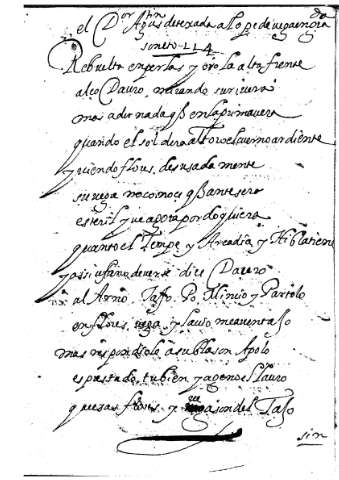 el Dor Agustin de texada a lope de vega en gra da
soneto 114
Rebuelta en perlas y oro la alta frente
alço Dauro, mirando su riuera
mas adornada q̃ en la primauera
quando el sol dora al toro el cuerno ardiente
y viendo flores, desusadamente
su vega no conoce q̃ antes era
esteril, y ve agora por do quiera
quanto el Tempe y Arcadia, y Hibla tiene
y assi ufano de verse dice Dauro
al Arno, Tajo, Po, Mincio y Pactolo
en flores, vega, y lauro me auentajo
mas respondiole a su blason Apolo
es prestado tu bien y ageno el lauro
que essas flores, y vega son del Tajo
sin